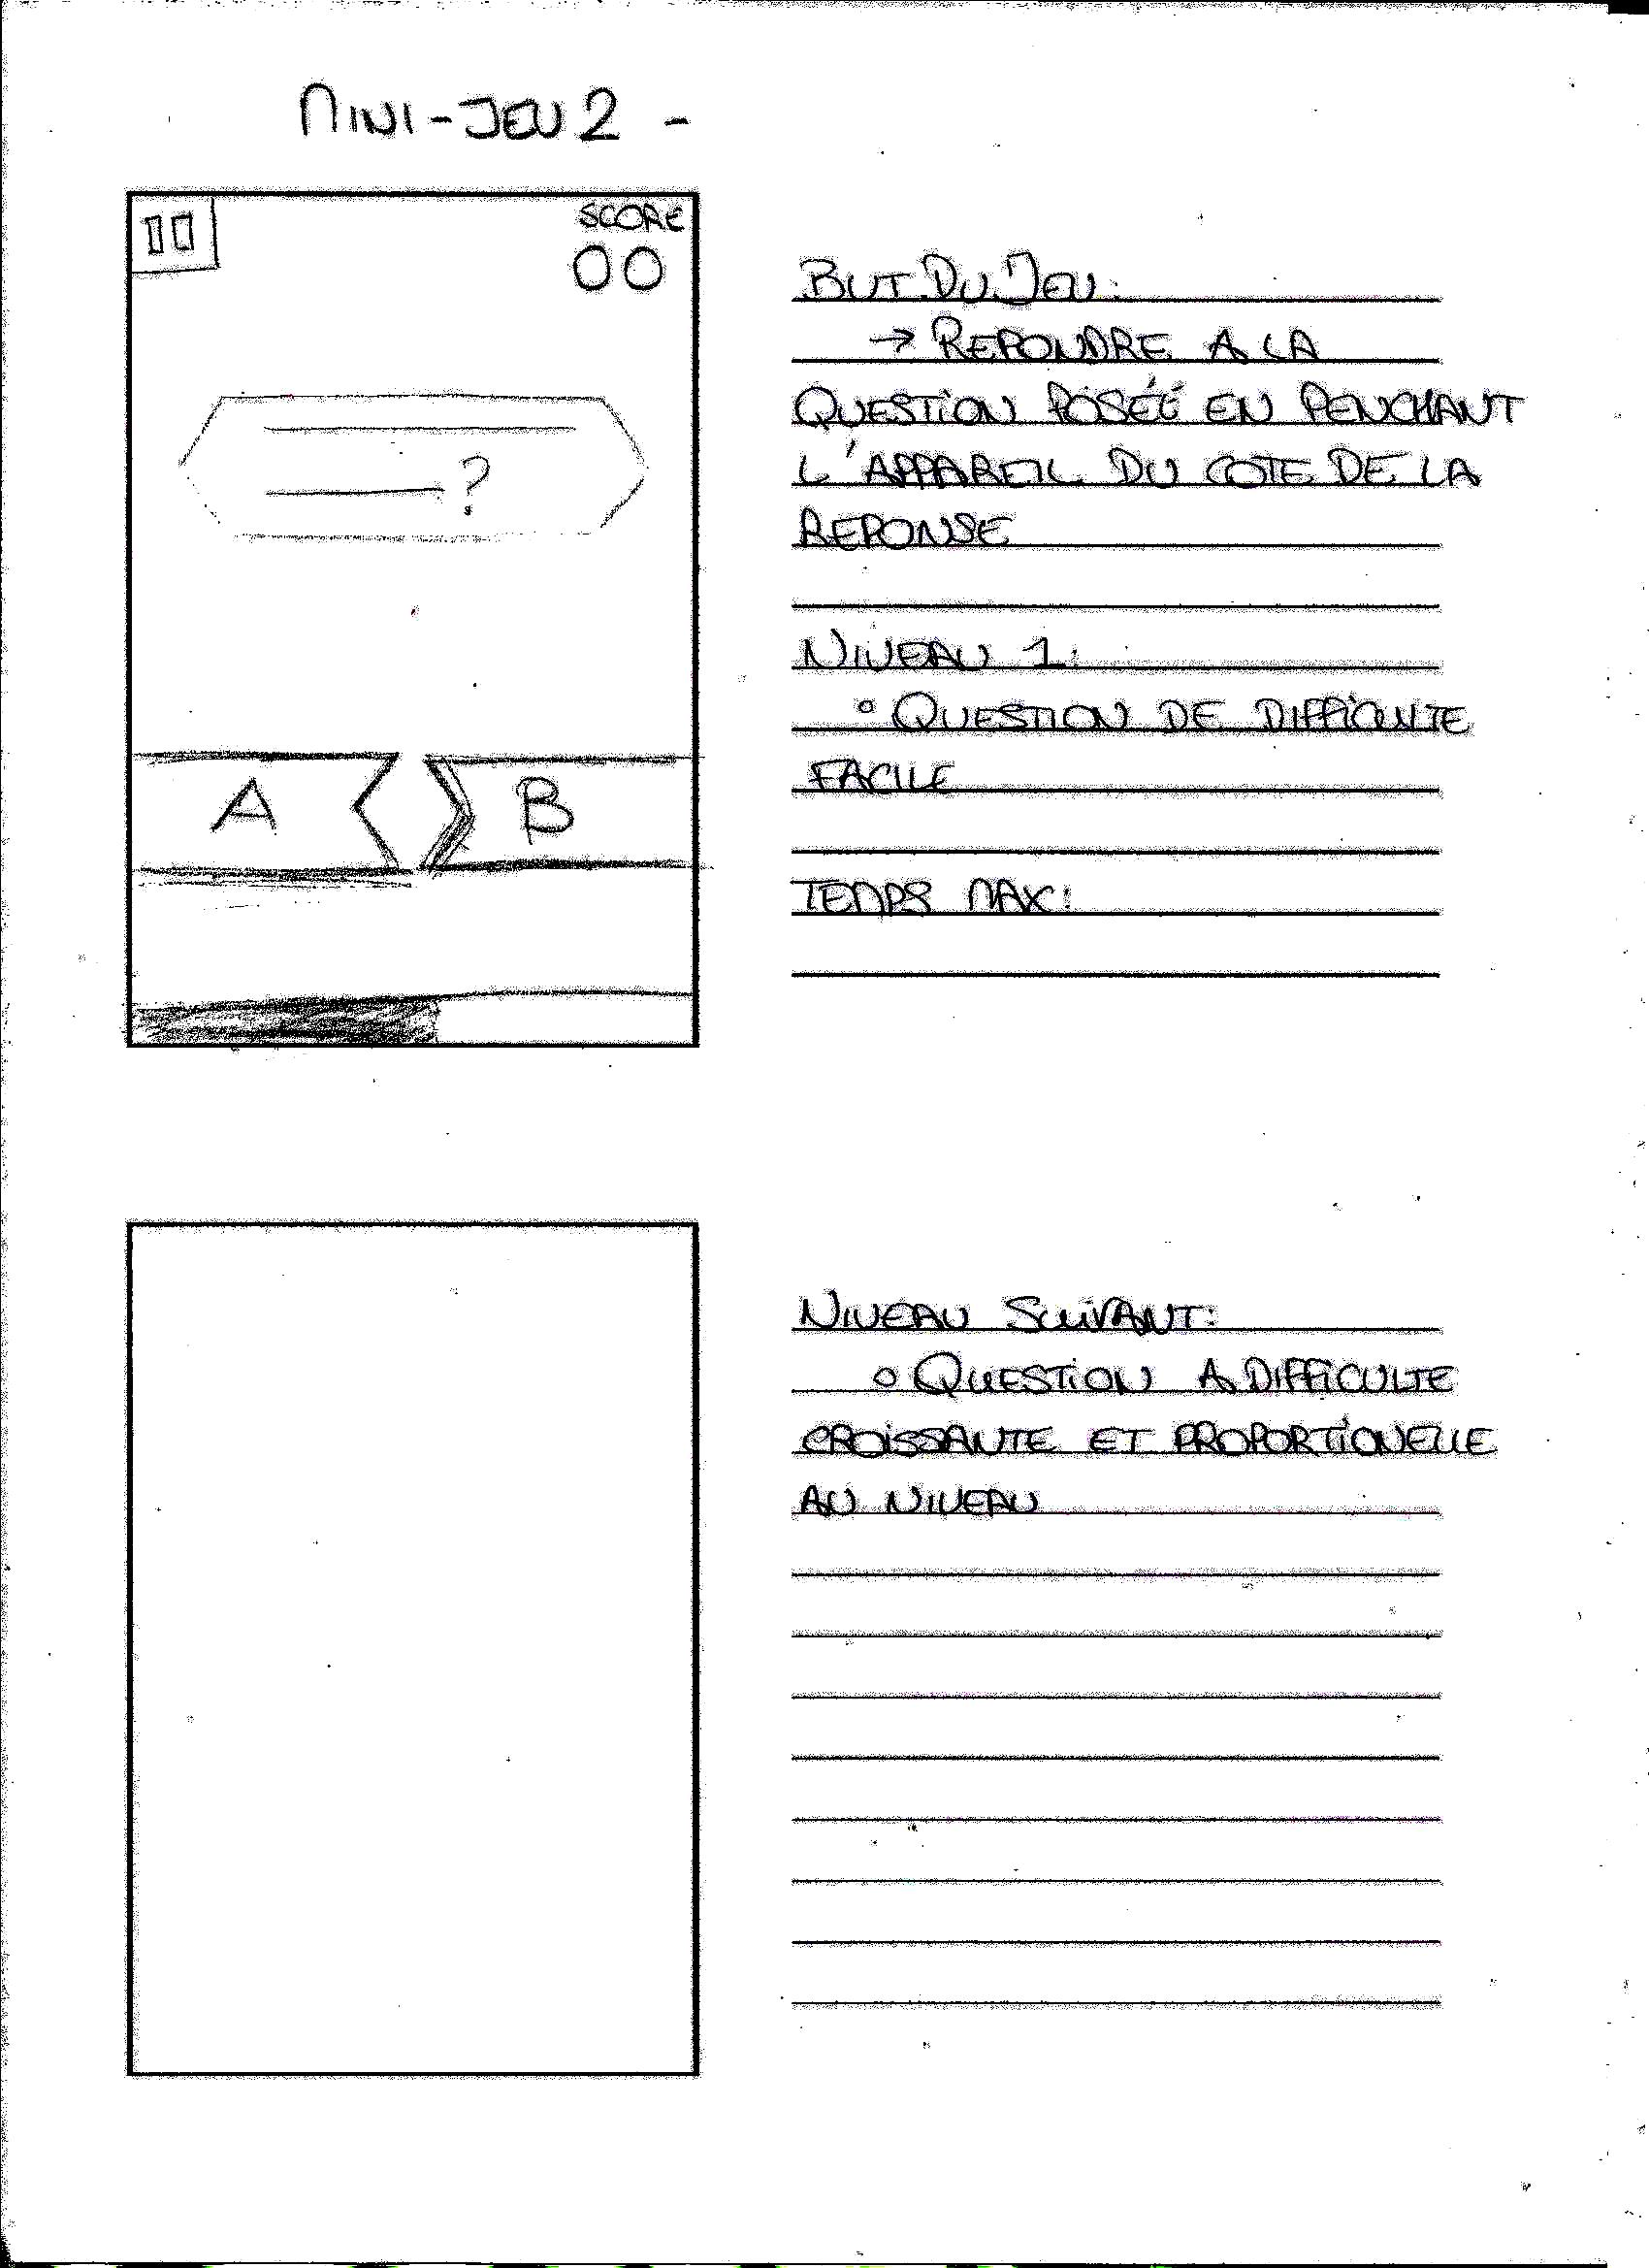 MINI-JEU 2 -
SCORE
00
?
A
B
BUT DU JEU:
→ REPONDRE A LA
QUESTION POSÉE EN PENCHANT
L'APPAREIL DU COTE DE LA
REPONSE
NIVEAU 1:
° QUESTION DE DIFFICULTE
FACILE
TEMPS MAX:
NIVEAU SUIVANT:
° QUESTION A DIFFICULTE
CROISSANTE ET PROPORTIONELLE
AU NIVEAU